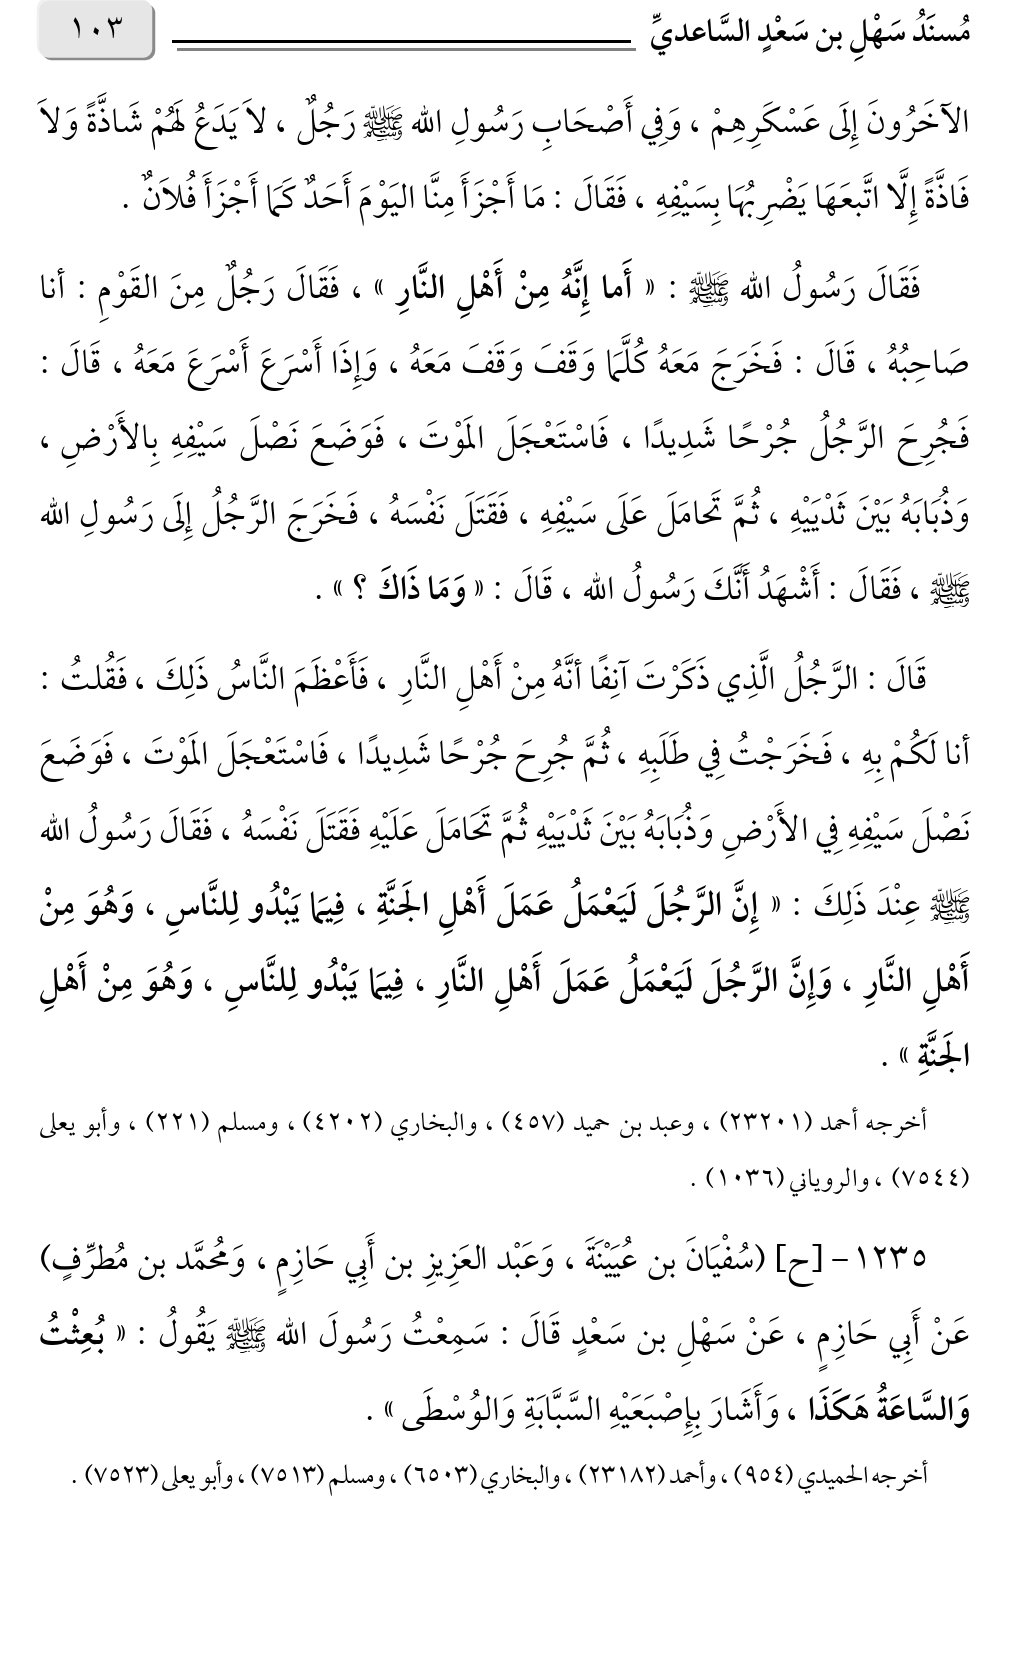 مُسنَدُ سَهْلِ بن سَعْدٍ السَّاعديِّ
١٠٣
الآخَرُونَ إِلَى عَسْكَرِهِمْ ، وَفِي أَصْحَابِ رَسُولِ الله ﷺ رَجُلٌ ، لاَ يَدَعُ لَهُمْ شَاذَّةً وَلاَ
فَاذَّةً إِلَّا اتَّبعَهَا يَضْرِبُهَا بِسَيْفِهِ ، فَقَالَ : مَا أَجْزَأَ مِنَّا اليَوْمَ أَحَدٌ كَمَا أَجْزَأَ فُلاَنٌ .
فَقَالَ رَسُولُ الله ﷺ : « أَما إِنَّهُ مِنْ أَهْلِ النَّارِ » ، فَقَالَ رَجُلٌ مِنَ القَوْمِ : أنا
صَاحِبُهُ ، قَالَ : فَخَرَجَ مَعَهُ كُلَّمَا وَقَفَ وَقَفَ مَعَهُ ، وَإِذَا أَسْرَعَ أَسْرَعَ مَعَهُ ، قَالَ :
فَجُرِحَ الرَّجُلُ جُرْحًا شَدِيدًا ، فَاسْتَعْجَلَ المَوْتَ ، فَوَضَعَ نَصْلَ سَيْفِهِ بِالأَرْضِ ،
وَذُبَابَهُ بَيْنَ ثَدْيَيْهِ ، ثُمَّ تَحامَلَ عَلَى سَيْفِهِ ، فَقَتَلَ نَفْسَهُ ، فَخَرَجَ الرَّجُلُ إِلَى رَسُولِ الله
ﷺ ، فَقَالَ : أَشْهَدُ أَنَّكَ رَسُولُ الله ، قَالَ : « وَمَا ذَاكَ ؟ » .
قَالَ : الرَّجُلُ الَّذِي ذَكَرْتَ آنِفًا أنَّهُ مِنْ أَهْلِ النَّارِ ، فَأَعْظَمَ النَّاسُ ذَلِكَ ، فَقُلتُ :
أنا لَكُمْ بِهِ ، فَخَرَجْتُ فِي طَلَبِهِ ، ثُمَّ جُرِحَ جُرْحًا شَدِيدًا ، فَاسْتَعْجَلَ المَوْتَ ، فَوَضَعَ
نَصْلَ سَيْفِهِ فِي الأَرْضِ وَذُبَابَهُ بَيْنَ ثَدْيَيْهِ ثُمَّ تَحَامَلَ عَلَيْهِ فَقَتَلَ نَفْسَهُ ، فَقَالَ رَسُولُ الله
ﷺ عِنْدَ ذَلِكَ : « إِنَّ الرَّجُلَ لَيَعْمَلُ عَمَلَ أَهْلِ الجَنَّةِ ، فِيمَا يَبْدُو لِلنَّاسِ ، وَهُوَ مِنْ
أَهْلِ النَّارِ ، وَإِنَّ الرَّجُلَ لَيَعْمَلُ عَمَلَ أَهْلِ النَّارِ ، فِيمَا يَبْدُو لِلنَّاسِ ، وَهُوَ مِنْ أَهْلِ
الجَنَّةِ » .
أخرجه أحمد (٢٣٢٠١) ، وعبد بن حميد (٤٥٧) ، والبخاري (٤٢٠٢) ، ومسلم (٢٢١) ، وأبو يعلى
(٧٥٤٤) ، والروياني (١٠٣٦) .
١٢٣٥ – [ح] (سُفْيَانَ بن عُيَيْنَةَ ، وَعَبْد العَزِيزِ بن أَبِي حَازِمٍ ، وَمُحمَّد بن مُطرِّفٍ)
عَنْ أَبِي حَازِمٍ ، عَنْ سَهْلِ بن سَعْدٍ قَالَ : سَمِعْتُ رَسُولَ الله ﷺ يَقُولُ : « بُعِثْتُ
وَالسَّاعَةُ هَكَذَا ، وَأَشَارَ بِإِصْبَعَيْهِ السَّبَّابَةِ وَالوُسْطَى » .
أخرجه الحميدي (٩٥٤) ، وأحمد (٢٣١٨٢) ، والبخاري (٦٥٠٣) ، ومسلم (٧٥١٣) ، وأبو يعلى (٧٥٢٣) .